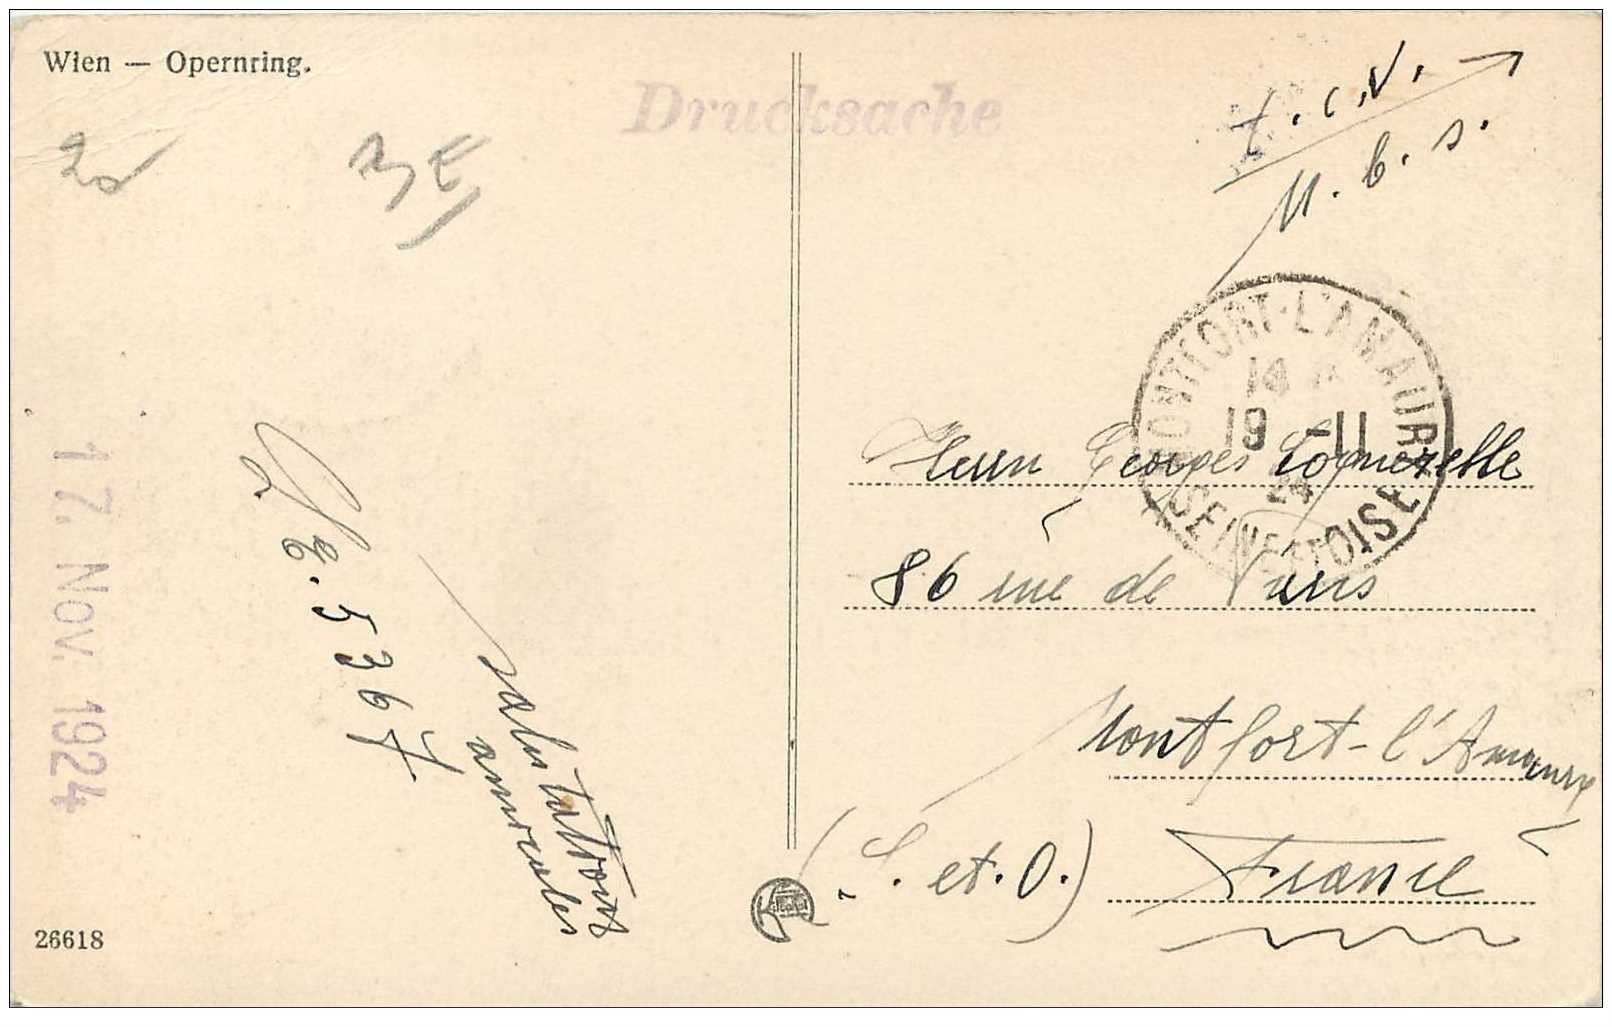 Wien — Opernring.
Drucksache
t.c.v.
u.b.s.
20
3E
17. Nov. 1924
5367
salutations
amicales
26618
MONTFORT-L'AMAURY
19 -11
24
SEINE-ET-OISE
Herrn Georges
86 rue de Paris
Montfort-l'Amaury
(S. et. O.) France